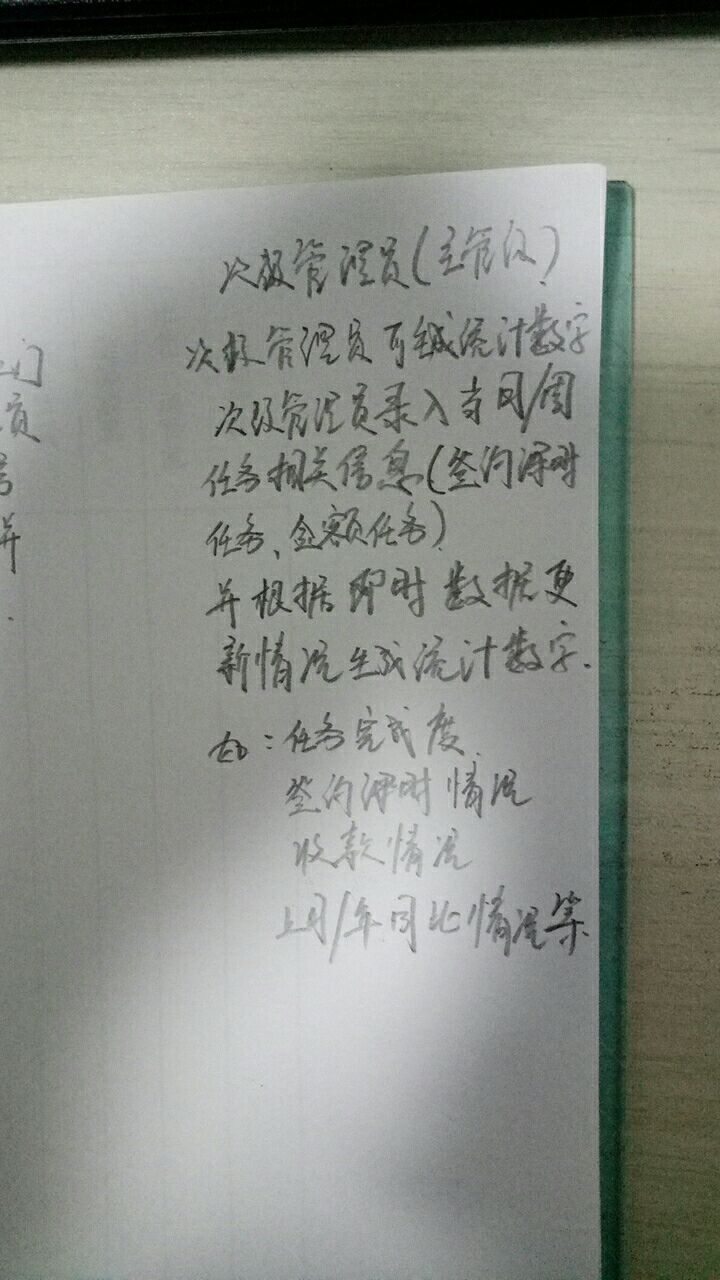 次级管理员(主管级)
次级管理员可做统计数字
次级管理员录入当月/周
任务相关信息(签约课时
任务、金额任务)
并根据即时数据更
新情况生成统计数字.
如:任务完成度.
签约课时情况
收款情况
上月/年同比情况等.
员
并